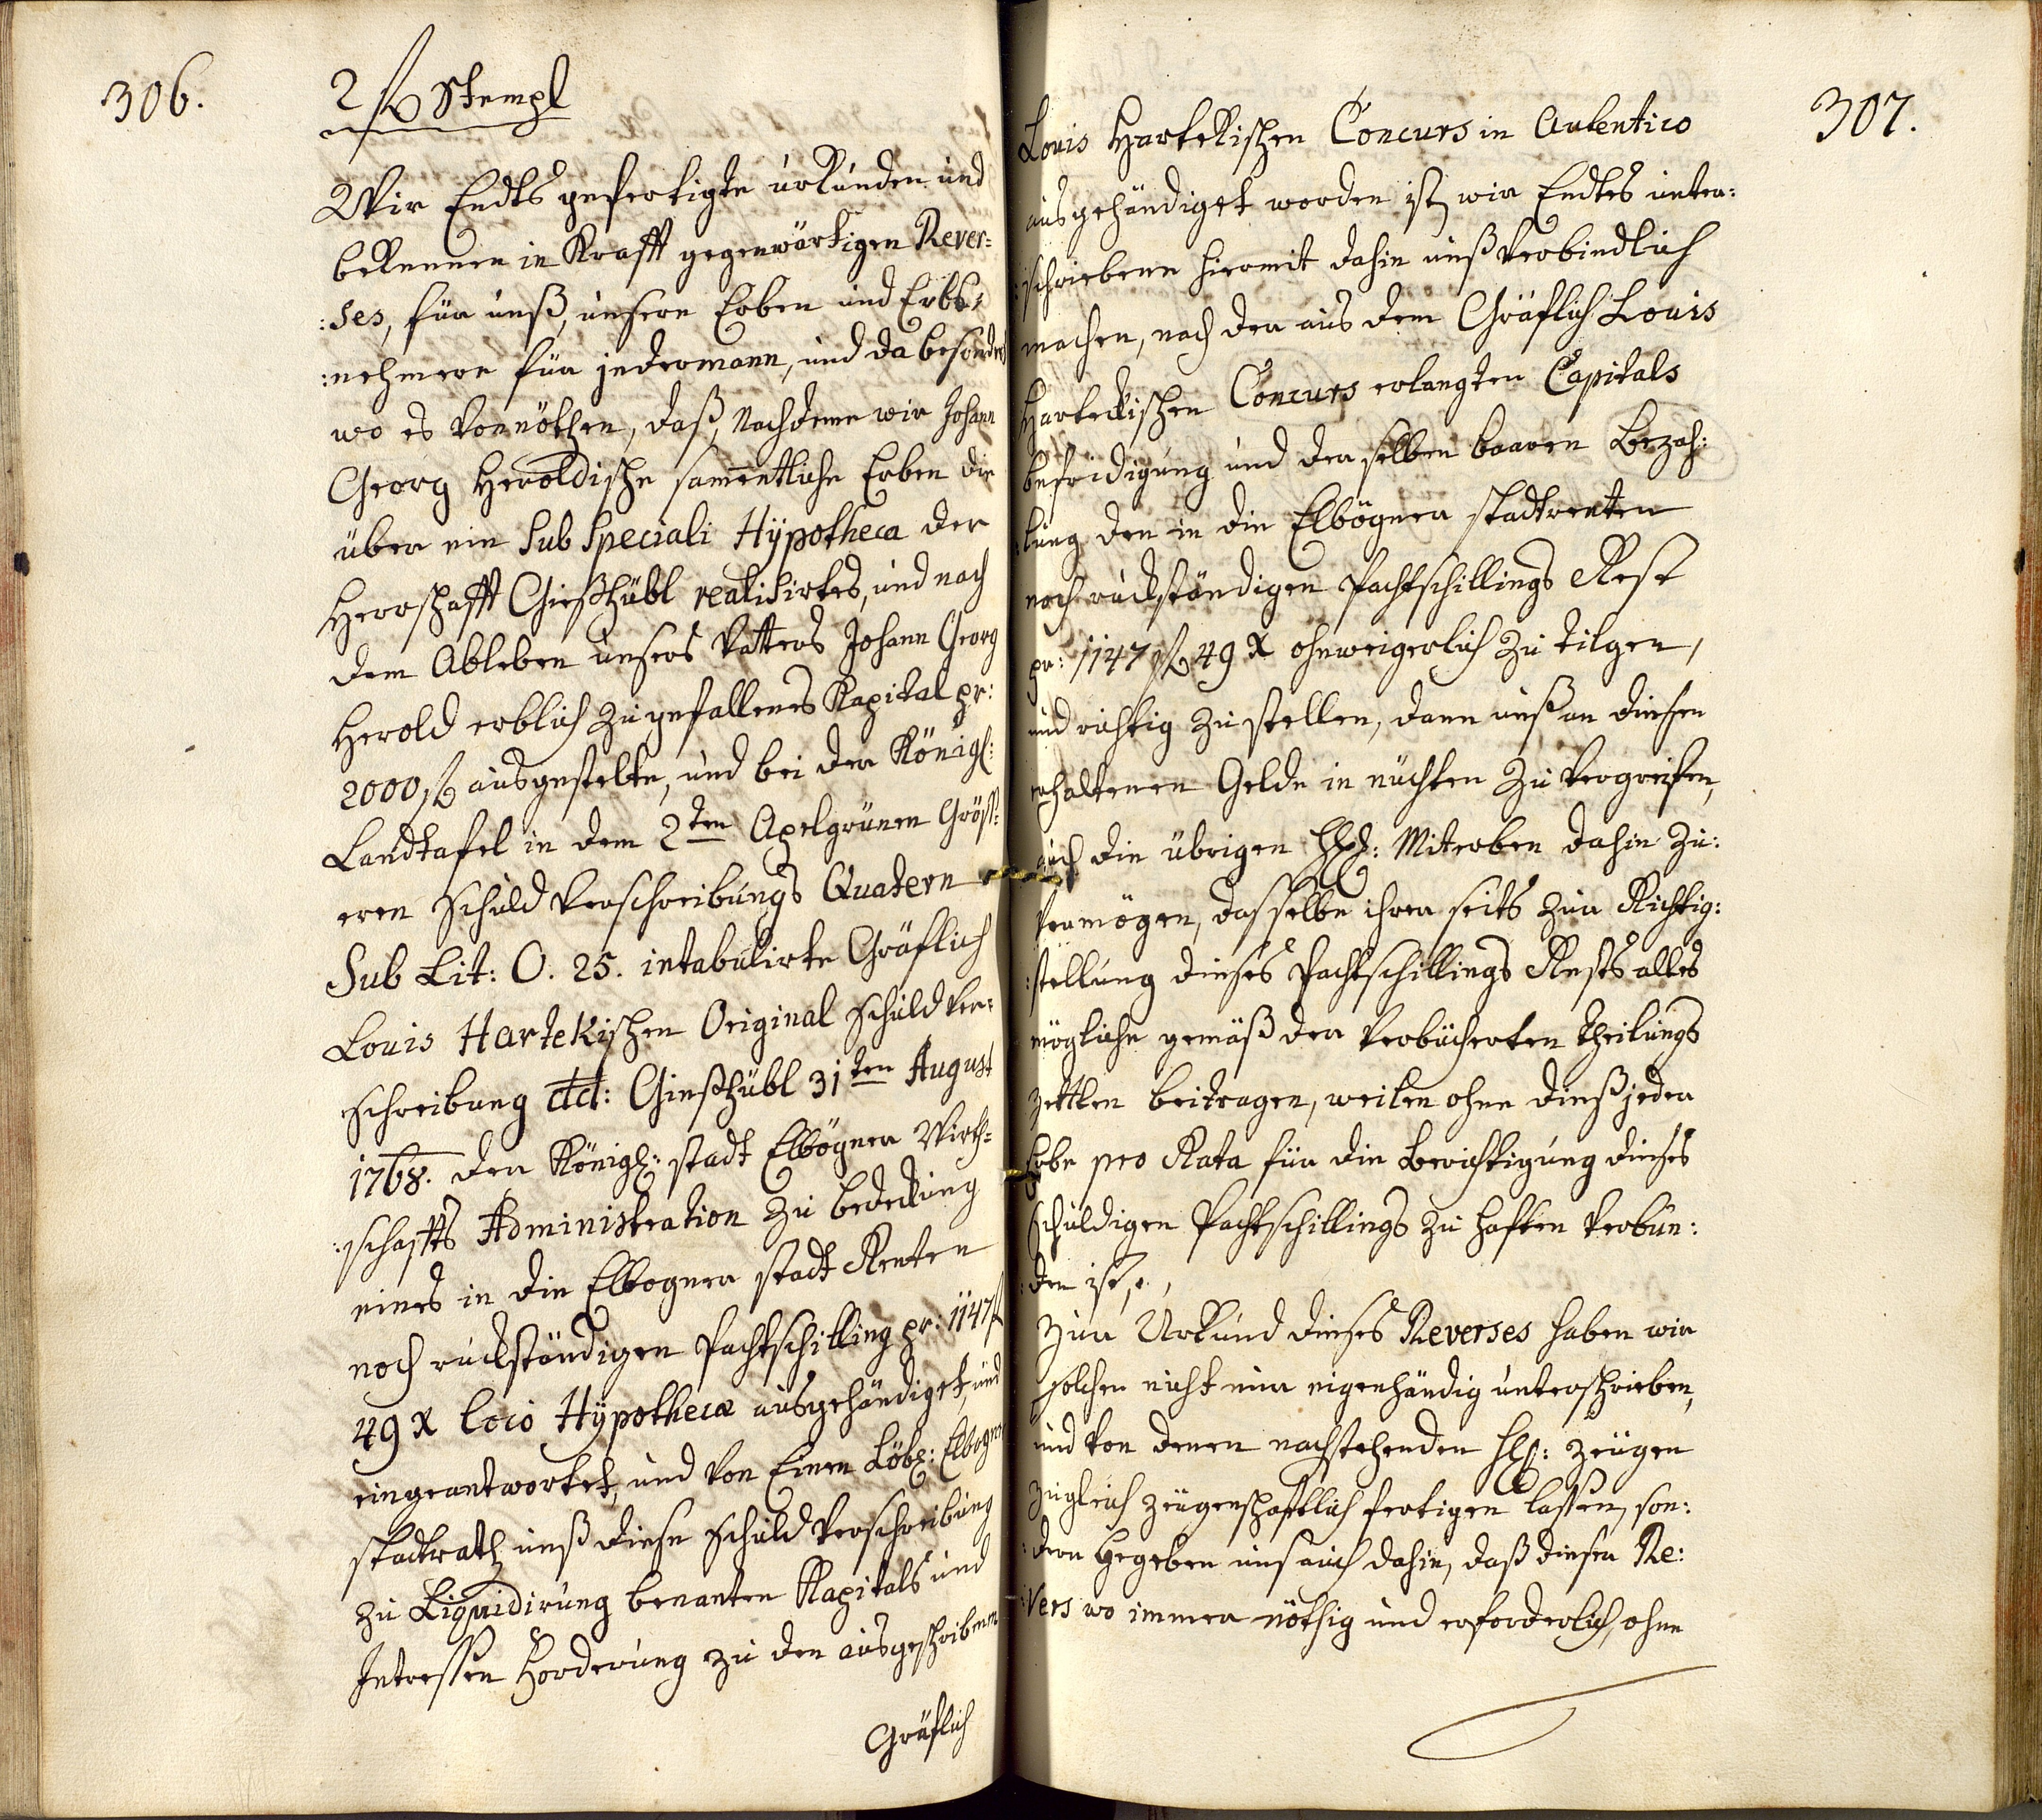 306.
2 fl Stempl
Wir Endts gefertigte urkunden und
bekennen in Krafft gegenwärtigen Rever=
:ses, für unß, unsere Erben und Erbs=
:nehmere für jedermann, und da besonders
wo es vonnöthen, daß, Nachdeme wir Johann
Georg Heroldische samentliche Erben die
über ein Sub Speciali Hÿpotheca der
Herrschafft Gießhübl realisirtes, und nach
dem Ableben unsers Vatters Johann Georg
Herold erblich zugefallenes Kapital pr:
2000 fl ausgestelte, und bei der Königl:
Landtafel in dem 2ten Apelgrünen Gröss=
eren Schuld Verschreibungs Quatern
Sub Lit: O. 25. intabulirte Gräflich
Louis Hartekischen Original Schuld Ver=
schreibung dtd: Gießhübl 31ten August
1768. der Königl: stadt Elbögner Wirth=
:schaffts Administration zu bedekung
eines in die Elbogner stadt Renten
noch ruckständigen Pachtschilling pr: 1147 fl
49 X loco Hÿpothecæ ausgehändiget, und
eingeantwortet, und von Einem Löbl: Elbogner
stadtrath unß diese Schuld Verschreibung
zu Liquidirung benanten Kapitals und
Intressen Forderung zu den ausgeschribenen
Gräflich
307.
Louis Hartekischen Concurs in Autentico
ausgehändiget worden ist, wir Endtes unter:
:schriebene hiermit dahin unß verbindlich
machen, nach der aus dem Gräflich Louis
Hartekischen Concurs erlangten Capitals
befridigung und derselben baaren Bezah:
:lung den in die Elbögner stadtrenten
noch ruckständigen Pachtschillings Rest
pr: 1147 fl 49 X ohnweigerlich zu tilgen,
und richtig zu stellen, dann unß an diesen
erhaltenen Gelde in nüchten zu vergreifen,
auch die übrigen HH: Miterben dahin zu:
vermögen, daß selbe ihrer seits zur Richtig:
:stellung dieses Pachtschillings Rests alles
mögliche gemäß der verbücherten Theilungs
zettlen beitragen, weilen ohne dieß jeder
Erbe pro Rata für die Berichtigung dieses
schuldigen Pachtschillings zu haften verbun:
:den ist,
zur Urkund dieses Reverses haben wir
solchen nicht nur eigenhändig unterschrieben,
und von denen nachstehenden HH: zeugen
zugleich zeugenschaftlich fertigen lassen, son:
:dern begeben uns auch dahin, daß dieser Re:
:vers wo immer nöthig und erforderlich, ohne